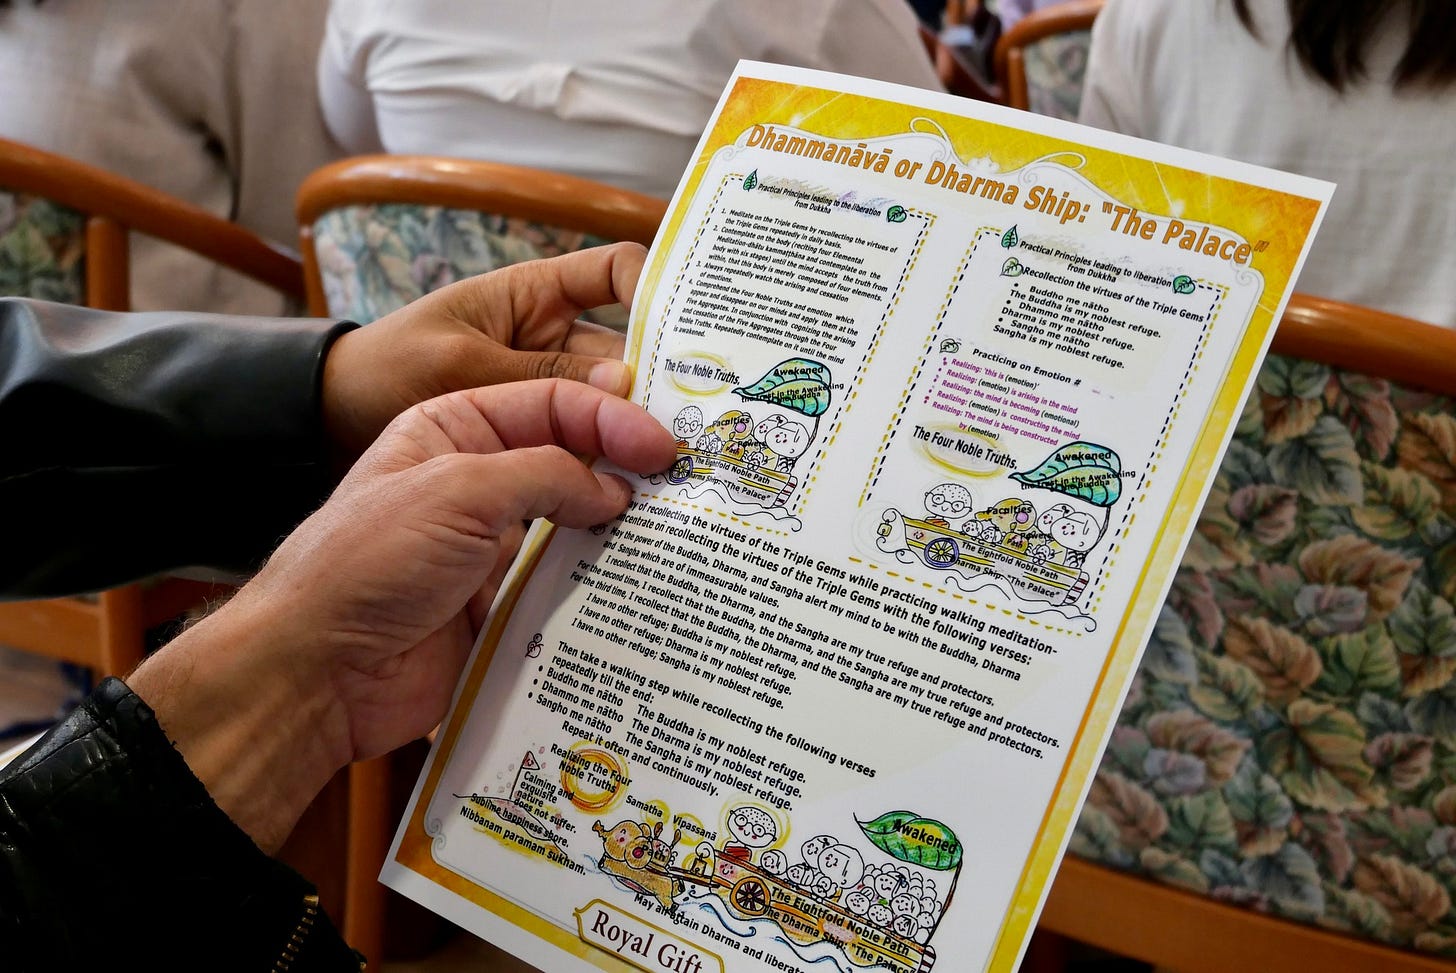 Dhammanāvā or Dharma Ship: "The Palace"
Practical Principles leading to the liberation
from Dukkha
1. Meditate on the Triple Gems by recollecting the virtues of
the Triple Gems repeatedly in daily basis.
2. Contemplate on the body (reciting four Elemental
Meditation-dhātu kammaṭṭhāna and contemplate on the
body with six stages) until the mind accepts the truth from
within, that this body is merely composed of four elements.
3. Always repeatedly watch the arising and cessation
of emotions.
4. Comprehend the Four Noble Truths and emotion which
appear and disappear on our minds and apply them at the
Five Aggregates. In conjunction with cognizing the arising
and cessation of the Five Aggregates through the Four
Noble Truths. Repeatedly contemplate on it until the mind
is awakened.
The Four Noble Truths.
Awakened
the trust in the Awakening
of the Buddha
Faculties
Powers
Path
The Eightfold Noble Path
Dharma Ship: "The Palace"
Practical Principles leading to liberation
from Dukkha
Recollection the virtues of the Triple Gems
• Buddho me nātho
The Buddha is my noblest refuge.
• Dhammo me nātho
Dharma is my noblest refuge.
Sangho me nātho
Sangha is my noblest refuge.
Practicing on Emotion #
• Realizing: 'this is (emotion)'
• Realizing: (emotion) is arising in the mind
• Realizing: the mind is becoming (emotional)
• Realizing: (emotion) is constructing the mind
• Realizing: The mind is being constructed
by (emotion)
The Four Noble Truths.
Awakened
the trust in the Awakening
of the Buddha
Faculties
Powers
Path
The Eightfold Noble Path
Dharma Ship: "The Palace"
way of recollecting the virtues of the Triple Gems while practicing walking meditation-
concentrate on recollecting the virtues of the Triple Gems with the following verses:
May the power of the Buddha, Dharma, and Sangha alert my mind to be with the Buddha, Dharma
and Sangha which are of immeasurable values.
I recollect that the Buddha, the Dharma, and the Sangha are my true refuge and protectors.
For the second time, I recollect that the Buddha, the Dharma, and the Sangha are my true refuge and protectors.
For the third time, I recollect that the Buddha, the Dharma, and the Sangha are my true refuge and protectors.
I have no other refuge; Buddha is my noblest refuge.
I have no other refuge; Dharma is my noblest refuge.
I have no other refuge; Sangha is my noblest refuge.
Then take a walking step while recollecting the following verses
repeatedly till the end:
• Buddho me nātho The Buddha is my noblest refuge.
• Dhammo me nātho The Dharma is my noblest refuge.
• Sangho me nātho The Sangha is my noblest refuge.
Repeat it often and continuously.
Realizing the Four
Noble Truths
Calming and
exquisite
nature
does not suffer.
Sublime happiness shore.
Nibbanam paramam sukham.
Samatha
Vipassanā
Awakened
The Eightfold Noble Path
The Dharma Ship: "The Palace"
May all attain Dharma and
Royal Gift